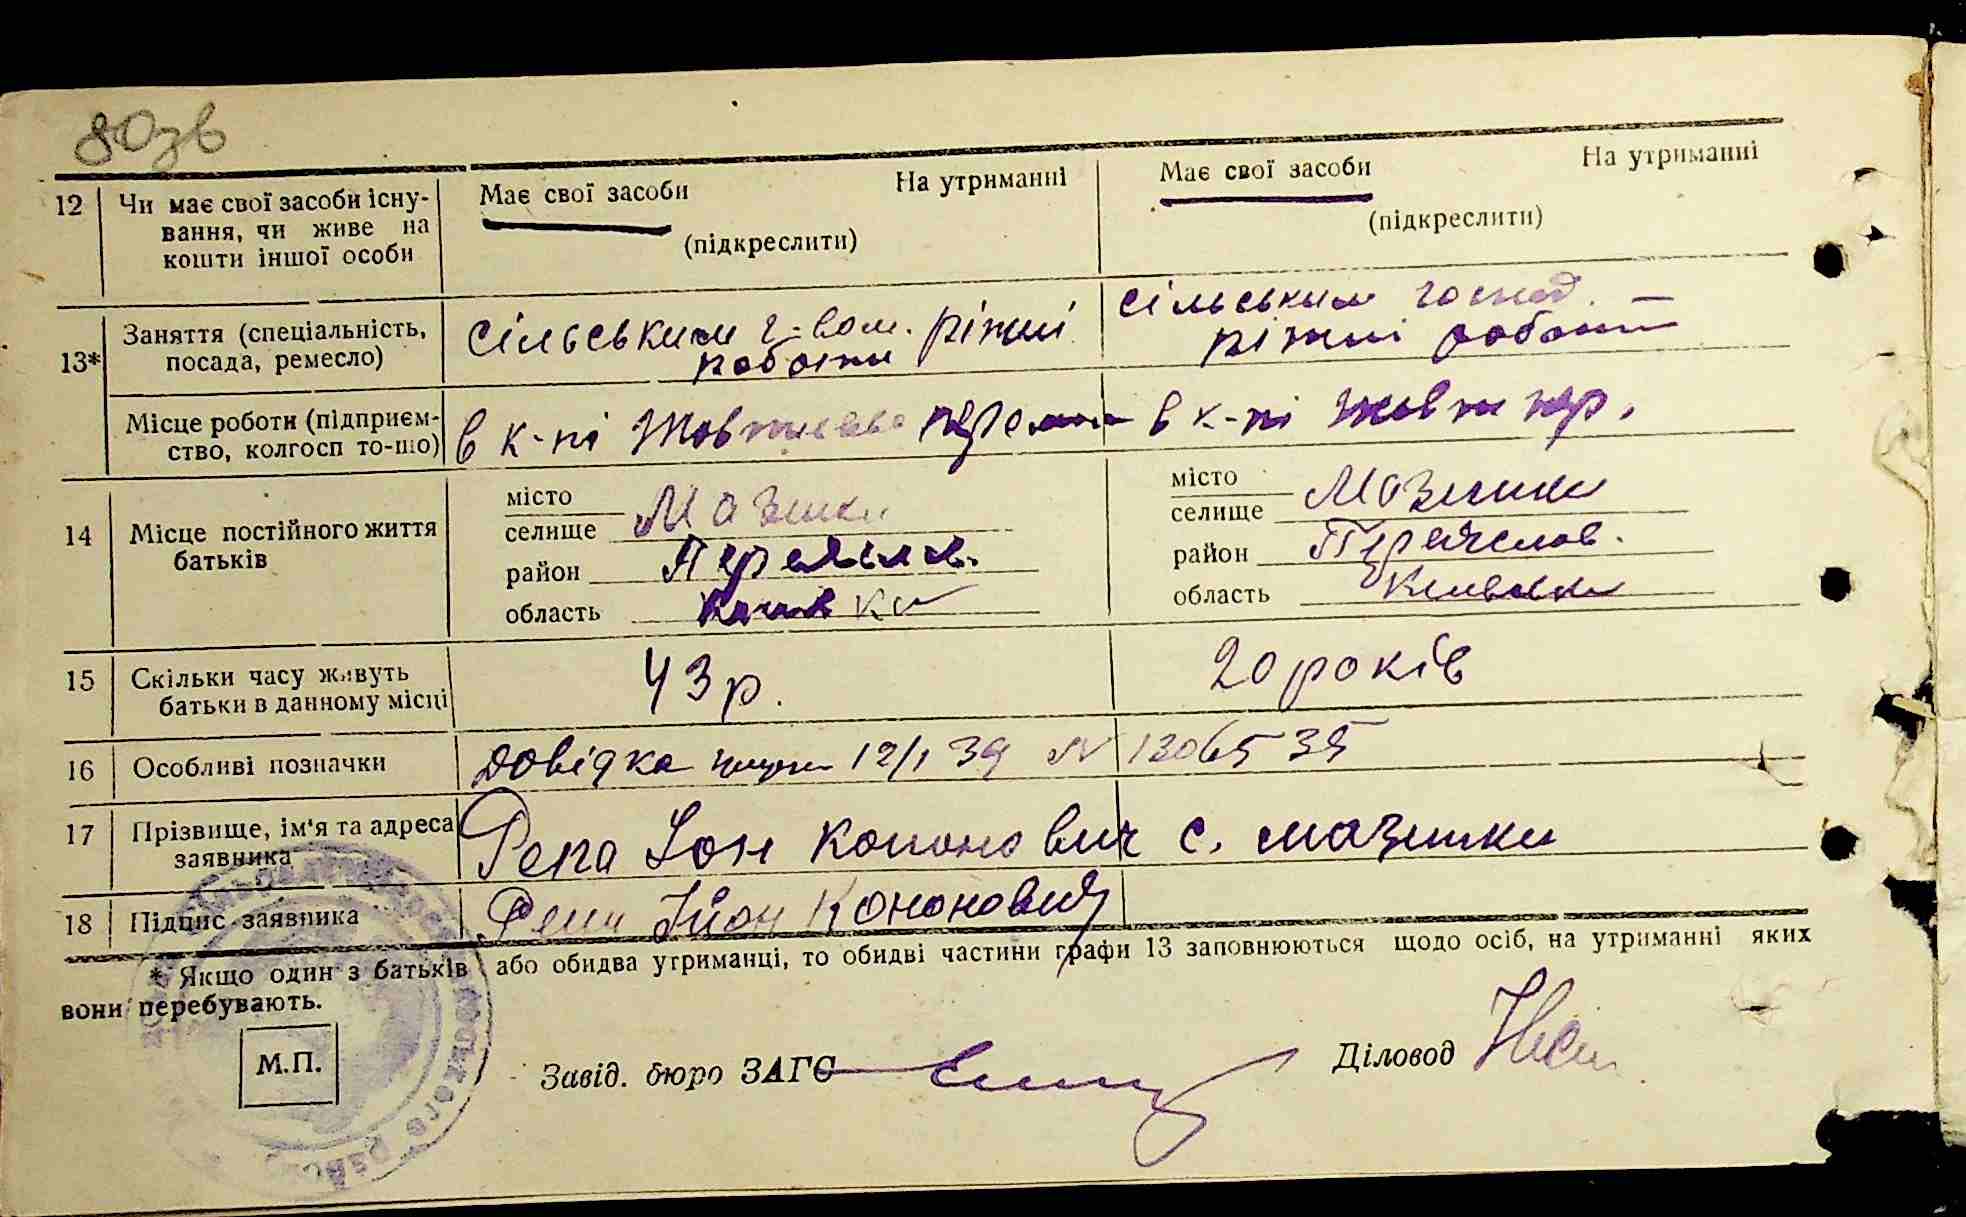 80зв
12 Чи має свої засоби існу- Має свої засоби На утриманні Має свої засоби На утриманні
вання, чи живе на (підкреслити) (підкреслити)
кошти іншої особи
13* Заняття (спеціальність, сільським г-вом. ріжні сільським господ. —
посада, ремесло) роботи ріжні роботи
Місце роботи (підприєм- в к-пі Жовтнева в к-пі Жовтн пер.
ство, колгосп то-що)
14 Місце постійного життя місто місто
батьків селище Мазінки селище Мазінки
район Переяслав. район Переяслав.
область Київська область Київська
15 Скільки часу живуть 43 р. 20 років
батьки в данному місці
16 Особливі позначки довідка 12/1 39 N 1306535
17 Прізвище, ім'я та адреса Репа Йон Кононович с. Мазінки
заявника
18 Підпис заявника Репа Йон Кононович
* Якщо один з батьків або обидва утриманці, то обидві частини графи 13 заповнюються щодо осіб, на утриманні яких
вони перебувають.
М.П.
Завід. бюро ЗАГС Діловод